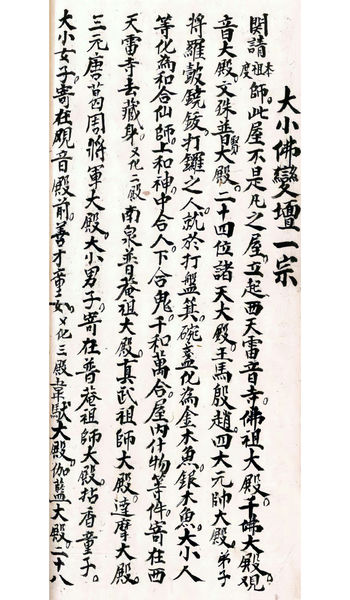 大小佛變壇一宗
関請本度祖師此屋不是凡之屋立起西天雷音寺佛祖大殿千佛大殿观
音大殿文殊普賢大殿二十四位諸天大殿王馬殷趙四大元帥大殿弟子
將羅鼓鐃鈸打鑼之人就於打盤箕碗盞化為金木魚銀木魚大小人
等化為和合仙師上和神中合人下合鬼千和萬合屋内什物等件寄在西
天雷寺去藏身又化二殿南泉普菴祖大殿真武祖師大殿達摩大殿
三元唐葛周將軍大殿大小男子寄在普菴祖師大殿拈香童子
大小女子寄在观音殿前善才童女又化三殿韋馱大殿伽藍大殿二十八